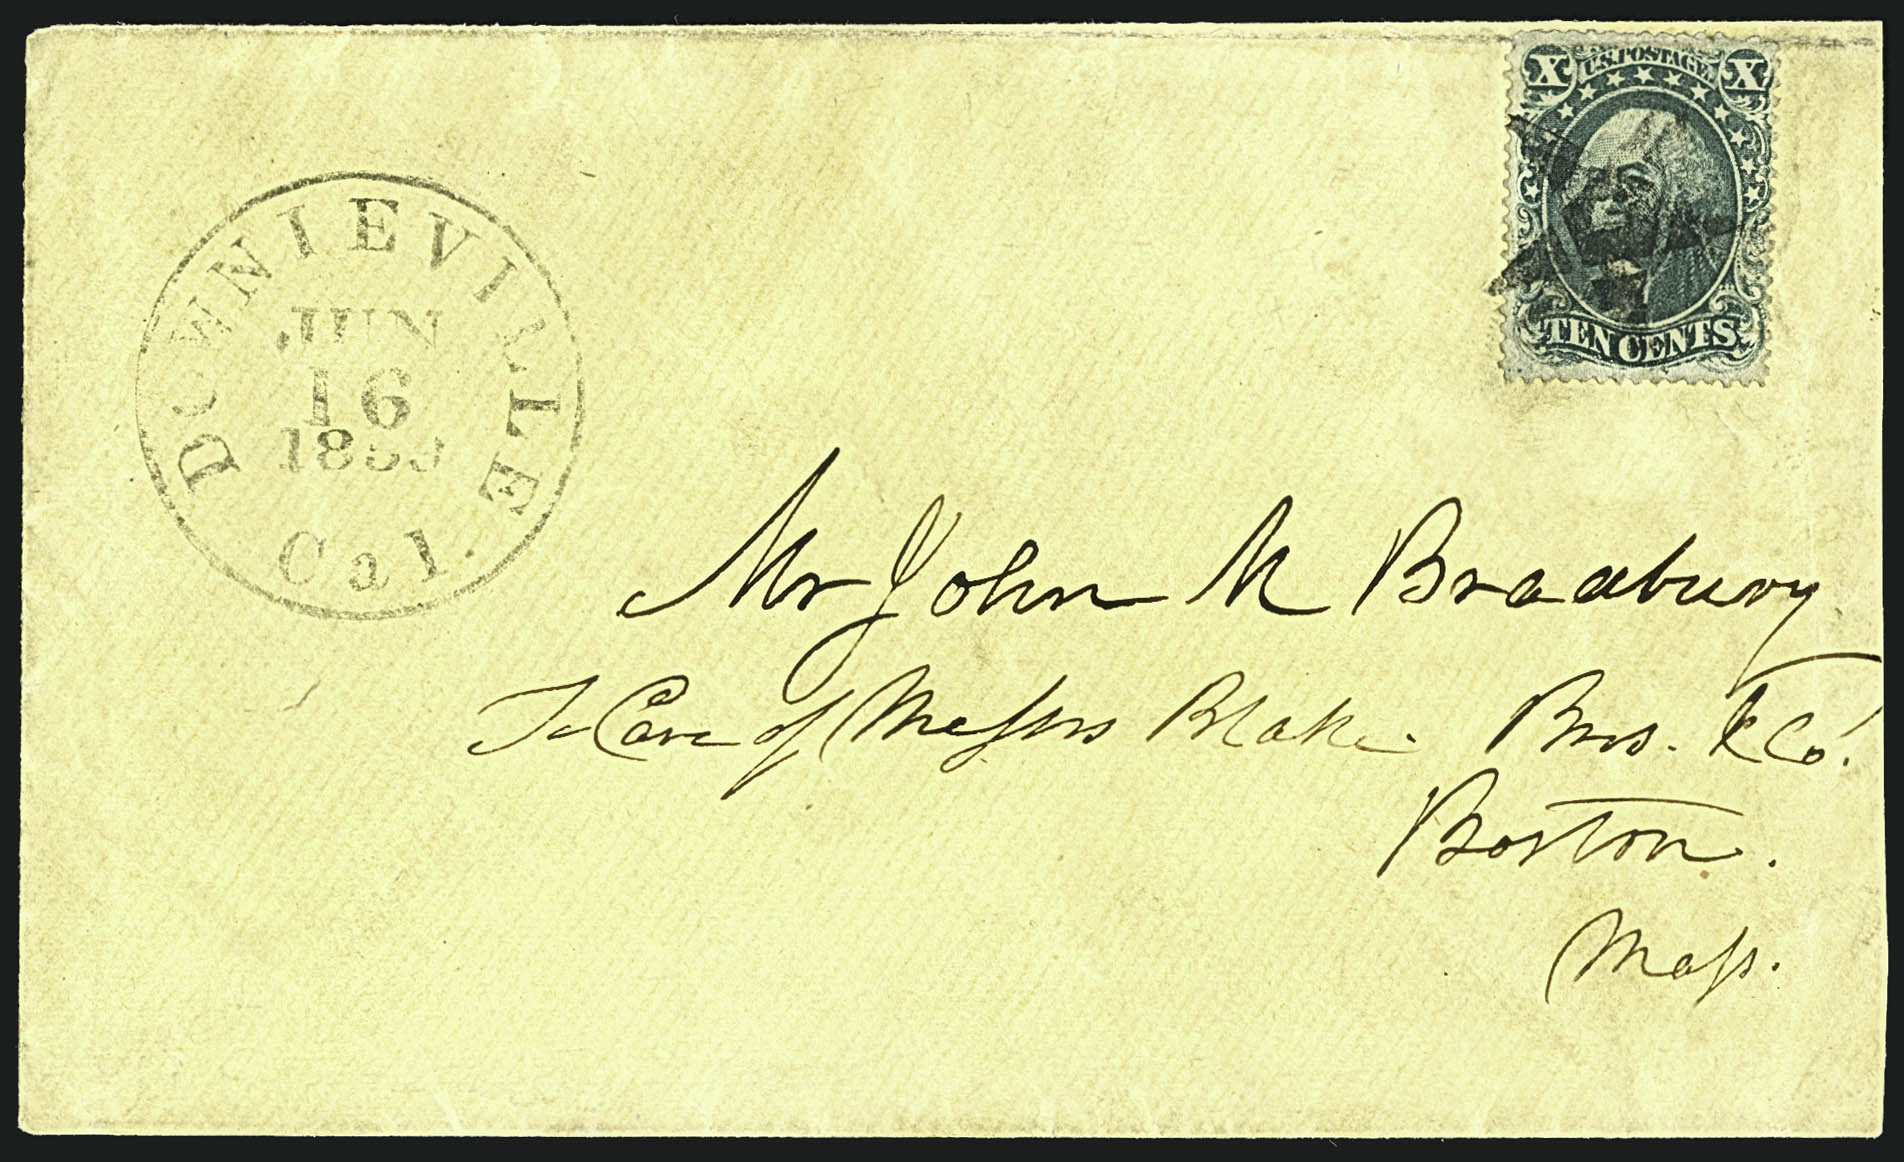 X U.S. POSTAGE. X
TEN CENTS.
DOWNIEVILLE
JUN
16
Cal.
Mr John M Bradbury
To Care of Messrs Blake Bros. & Co.
Boston.
Mass.